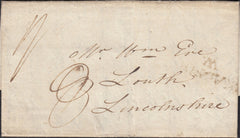 Mr. Wm Eve
Louth
Lincolnshire